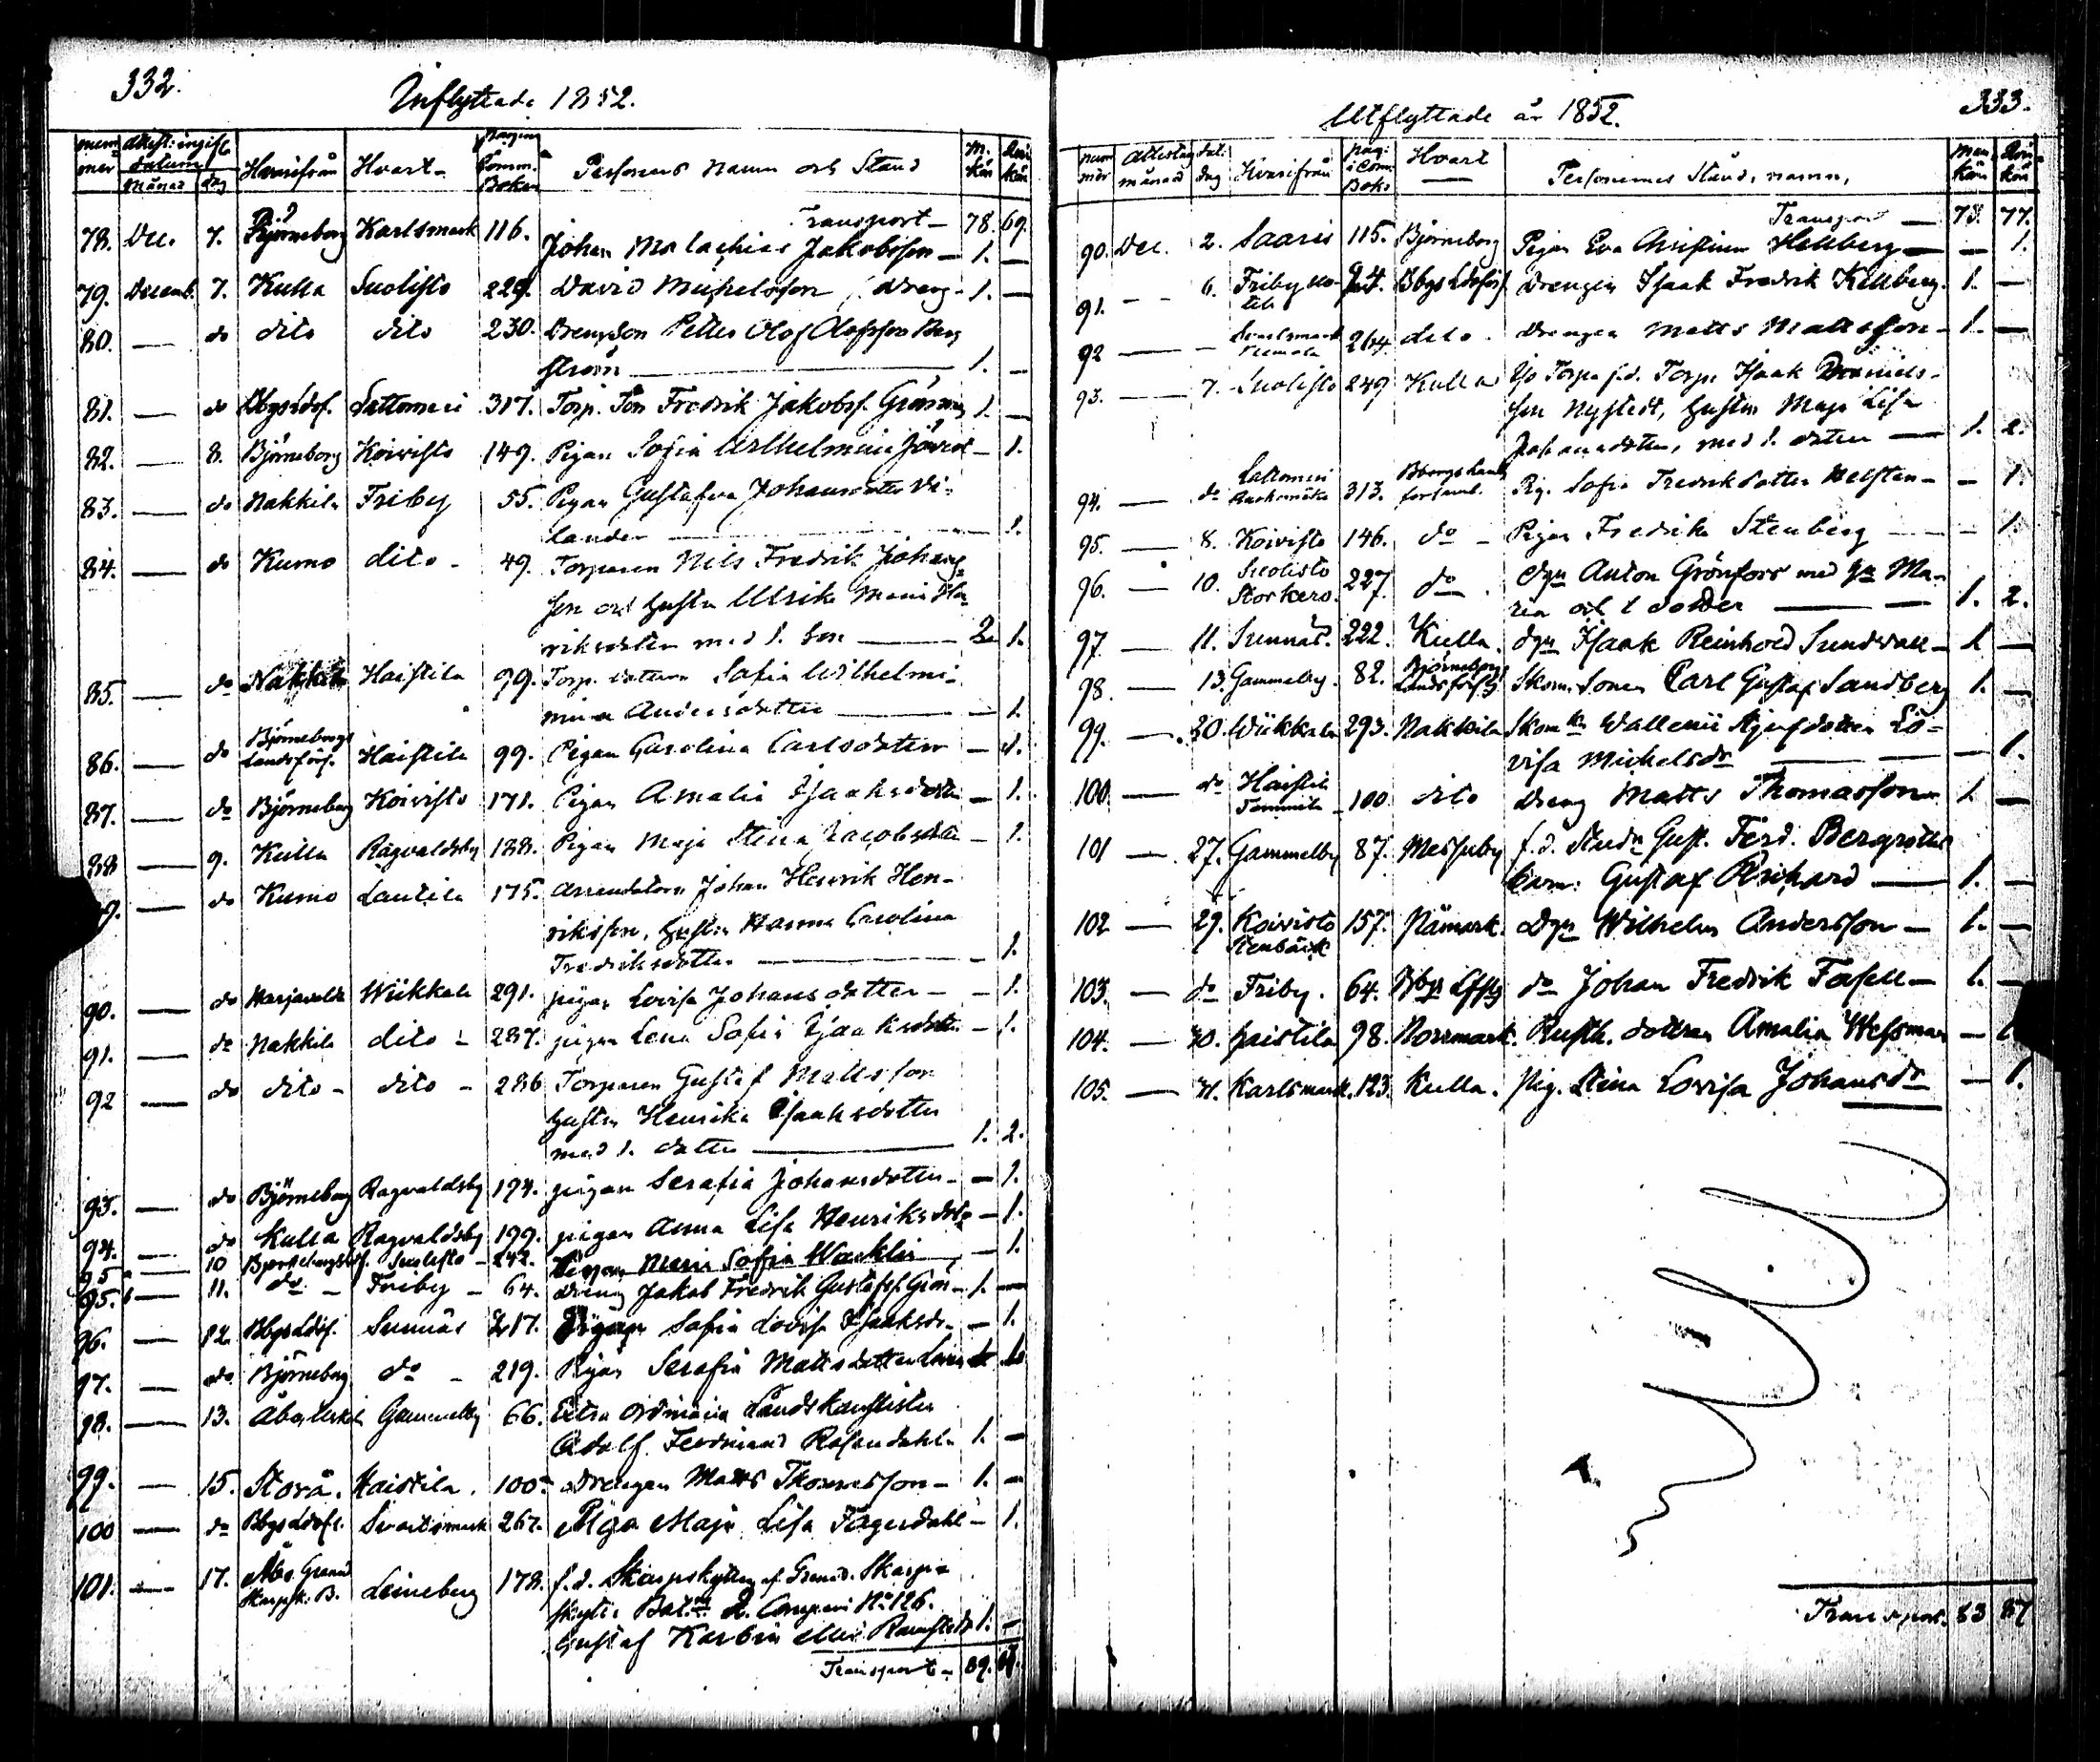 332.
Inflyttade 1852.
num̄er Attest: ingift. datum månad dag Hvarifrån Hvart Pagina Comm. Boken Personens namn och Stånd M. kön Qvin kön
Transport — 78. 69.
78. Dec. 7. Björneborg Karlsmark 116. Johan Malachias Jakobsson — 1. —
79. Decemb. 7. Kulla Suolisto 229. David Michelsson, dreng — 1. —
80. — do dito dito 230. Drengson Petter Olof Olofsson Berg
ström — 1. —
81. — do Bbgs Ldsf. Lattomeri 317. Torp. Son Fredrik Jakobss. Grönroos 1. —
82. — 8. Björneborg Koivisto 149. Pigan Sofia Wilhelmina — 1.
83. — do Nakkila Friby 55. Pigan Gustafva Johansdotter Vi-
lander — 1.
84. — do Kumo dito 49. Torparen Nils Fredrik Johans-
son och hustru Ulrika Maria Hen
riksdotter med 1. Son — 2. 1.
85. — do Nakkila Haistila 99. Torp. dottern Sofia Wilhelmi-
mina Andersdotter — 1.
86. — do Björneborgs Landsförs. Haistila 99. Pigan Carolina Carlsdotter — 1.
87. — do Björneborg Koivisto 171. Pigan Amalia Isaaksdotter — 1.
88 — 9. Kulla Ragvaldsby 188. Pigan Maja Stina Jacobsdotter — 1.
89. — do Kumo Lautila 175. Arrendatorn Johan Henrik Hen-
riksson, hustru Hanna Carolina
Fredriksdotter — 1.
90. — do Harjavalda Wiikkala 291. pigan Lovisa Johansdotter — — 1.
91. — do Nakkila dito 287. pigan Lena Sofia Isaaksdotter — 1.
92 — do dito — dito — 286 Torparen Gustaf Mattsson
hustru Henrika Isaaksdotter
med 1. dotter — 1. 2.
93. — do Björneborg Ragvaldsby 194. pigan Serafia Johansdotter — — 1.
94. — do Kulla Ragvaldsby 199. pigan Anna Lisa Henriksdotr — 1.
95 a — 10 Björneborgs Ldsf. Suolisto — 242. Pigan Maria Sofia Wacklin — 1.
95. b — 11. do — Friby — 64. dreng Jakob Fredrik Gustafss. Grön — 1. —
96. — 12. Bbgs Ldsf. Sunnäs 217. Pigan Sofia Lovisa Isaaksdr — — 1.
97. — do. Björneborg do — 219. Pigan Serafia Mattsdotter
98. — 13. Åbo Gammelby 66. Extra Ordinarie Landskanslisten
Adolf Ferdinand Rosendahl 1. —
99. — 15. Storå. Haistila. 100. Drengen Matts Thomasson — 1. —
100 — do Bbgs Ldsf. Svartsmark 267. Pigan Maja Lisa Fagerdahl — 1.
101. — 17. Åbo Grenad. Skarpsk. B. Leineberg 178. f.d. Skarpskytten af Grenad. Skarp-
skytte Batn 2. Compani No 126.
Gustaf Karbin eller 1. —
Transport — 89.
333.
Utflyttade år 1852.
num̄er Attestens månad dat. dag Hvarifrån pag: i Com. Bok Hvart Personernes Stånd, namn, Man kön Qvin kön
Transport — 78. 77.
90. Dec. 2. Saaris 115. Björneborg Pigan Eva Christina Hellberg — — 1.
91. — — 6. Friby 74. Bbgs Ldsförs. drengen Isaak Fredrik Kellberg. 1. —
92 — — Svartsmark 264. dito. drengen Matts Mattsson — 1. —
93. — 7. Suolisto 249 Kulla f.d. Torp. Isaak Daniels-
son Nystedt, hustru Maja Lisa
Johansdotter, med 1. dotter — 1. 2.
94. — do Lattomeri 313. Bborgs Lands församl. Pig. Sofia Fredriksdotter Helsten — — 1.
95. — 8. Koivisto 146. do — Pigan Fredrika Stenberg — — 1.
96. — 10. Suolisto Storkero. 227. do. dgn Anton Grönfors med hu Ma-
ria och 1 dotter — 1. 2.
97 — 11. Sunnäs. 222. Kulla. dgn Isaak Reinhold Sundvall — 1. —
98. — 13. Gammelby. 82. Björneborgs Landsförs. Skom. Sonen Carl Gustaf Sandberg 1. —
99. — 20. Wiikkala 293. Nakkila Skomkn Wallenii Stjufdotter Lo-
visa Michelsdr — — 1.
100. — do Haistila Tommila 100 dito dreng Matts Thomasson 1. —
101 — 27. Gammelby 87. Messuby f.d. Studn Gust. Ferd. Bergroths
barn: Gustaf Richard — 1. —
102 — 29. Koivisto Stenbäck 157. Påmark. Dgn Wilhelm Andersson — 1. —
103. — do Friby. 64. Bbgs Lfsg do Johan Fredrik Fasell — 1. —
104. — 30. Haistila 98. Norrmark. Rusth. dottren Amalia Wessman — 1
105. — 31. Karlsmark. 123. Kulla. Pig. Stina Lovisa Johansdr — 1.
Transport. 83 87